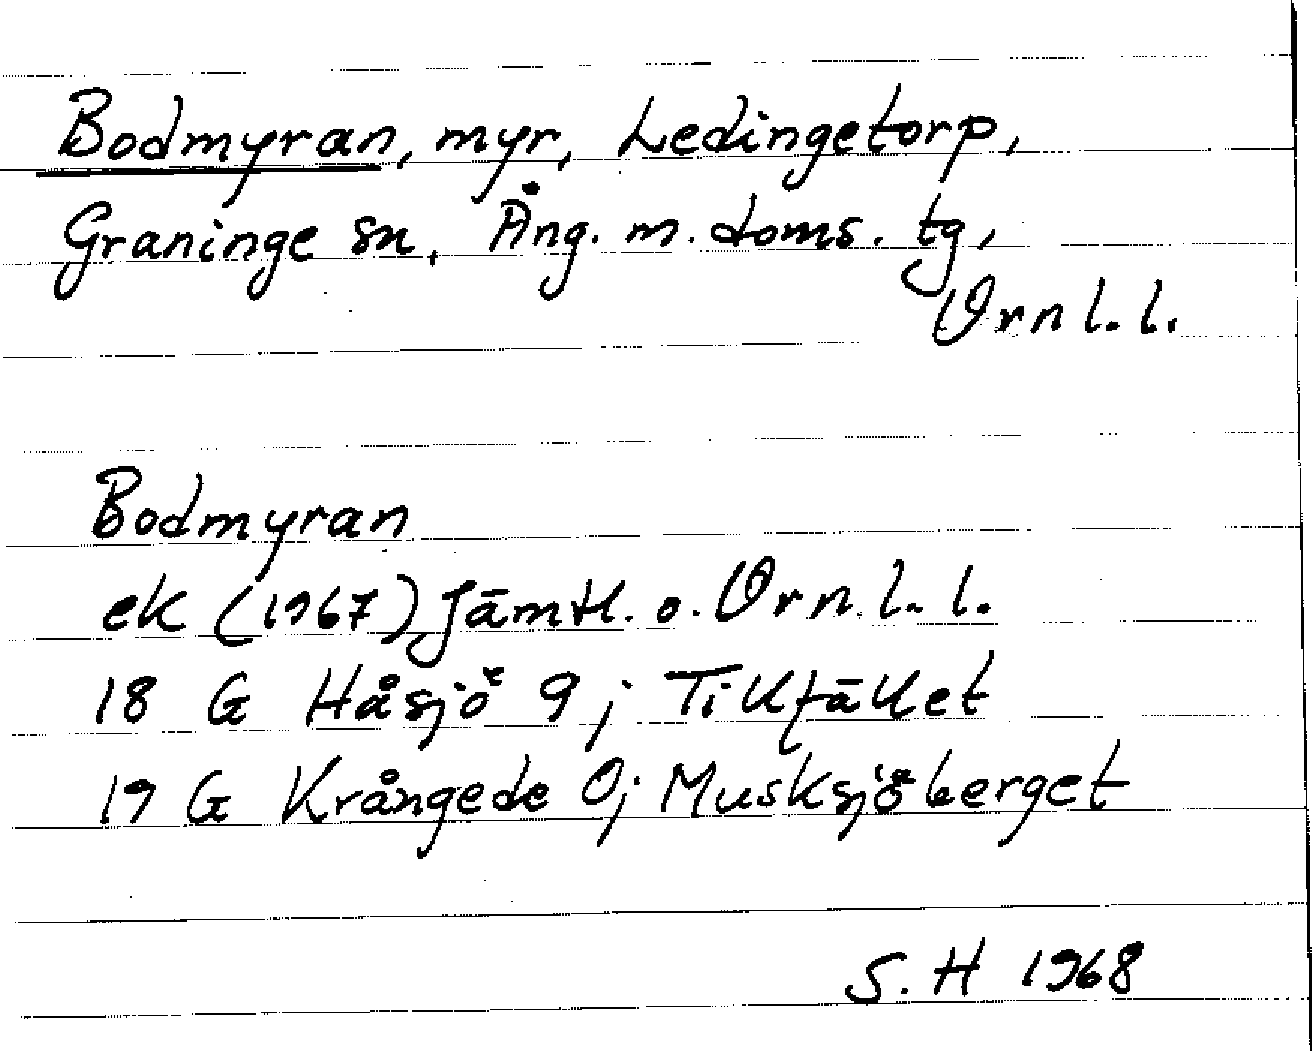 Bodmyran, myr, Ledingetorp,
Graninge sn, Ång. m. doms. tg,
Vrnl. l.
Bodmyran
ek (1967) Jämtl. o. Vrn. l. l.
18 G Håsjö 9; Tilltäket
19 G Krångede 0; Musksjöberget
S. H 1968